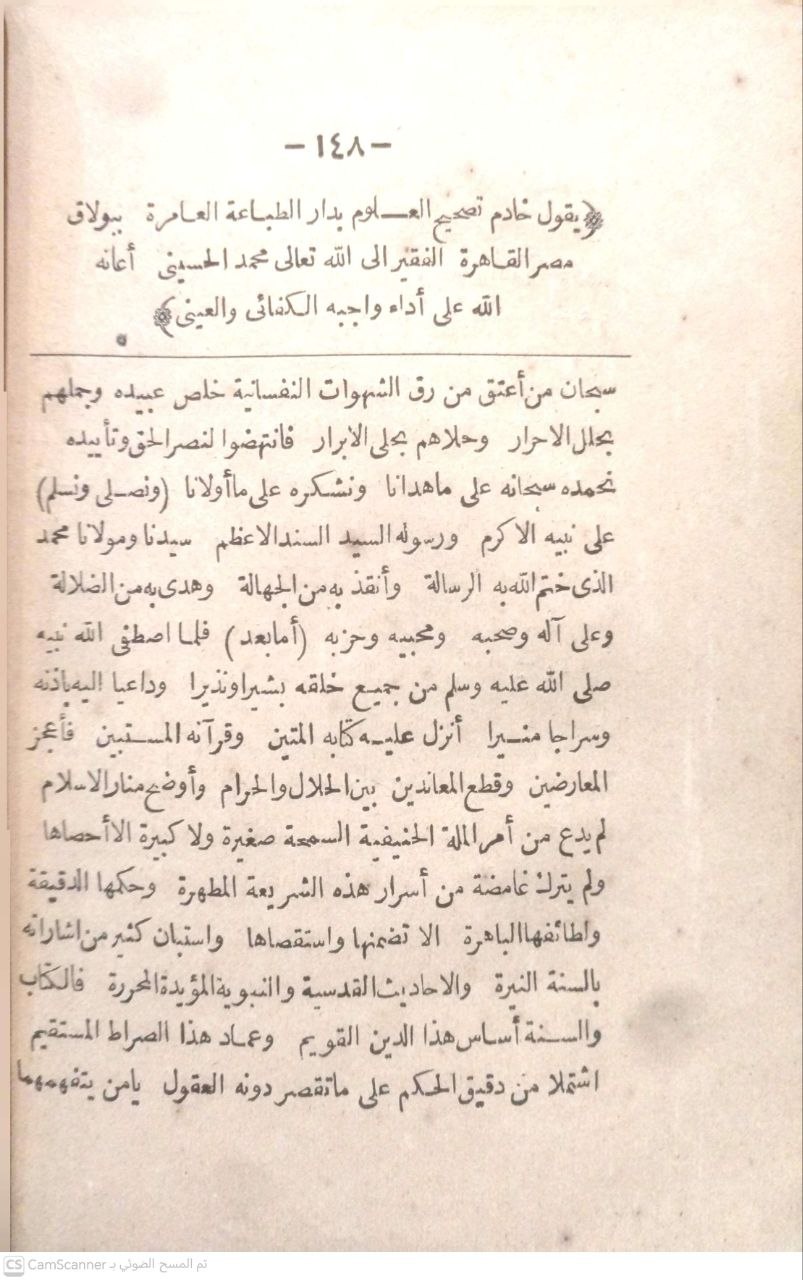 - ١٤٨ -
﴿يقول خادم تصحيح العلوم بدار الطباعة العامرة ببولاق
مصر القاهرة الفقير الى الله تعالى محمد الحسينى أعانه
الله على أداء واجبه الكفائى والعينى﴾
سبحان من أعتق من رق الشهوات النفسانية خلص عبيده وجملهم
بحلل الاحرار وحلاهم بحلى الابرار فانتهضوا لنصر الحق وتأييده
نحمده سبحانه على ما هدانا ونشكره على ما أولانا (ونصلى ونسلم)
على نبيه الاكرم ورسوله السيد السند الاعظم سيدنا ومولانا محمد
الذى ختم الله به الرسالة وأنقذ به من الجهالة وهدى به من الضلالة
وعلى آله وصحبه ومحبيه وحزبه (أما بعد) فلما اصطفى الله نبيه
صلى الله عليه وسلم من جميع خلقه بشيرا ونذيرا وداعيا اليه باذنه
وسراجا منيرا أنزل عليه كتابه المتين وقرآنه المستبين فأعجز
المعارضين وقطع المعاندين بين الحلال والحرام وأوضح منار الاسلام
لم يدع من أمر الملة الحنيفية السمحة صغيرة ولا كبيرة الا أحصاها
ولم يترك غامضة من أسرار هذه الشريعة المطهرة وحكمها الدقيقة
ولطائفها الباهرة الا تضمنها واستقصاها واستبان كثير من اشاراته
بالسنة النيرة والاحاديث القدسية والنبوية المؤيدة المحررة فالكتاب
والسنة أساس هذا الدين القويم وعماد هذا الصراط المستقيم
اشتملا من دقيق الحكم على ما تقصر دونه العقول يا من يتفهمهما
CS CamScanner تم المسح الضوئي بـ